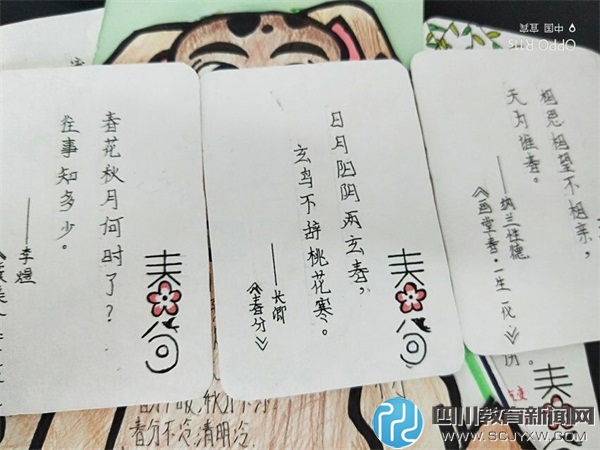 春花秋月何时了？
往事知多少。
——李煜
日月阳阴两玄春，
玄鸟不辞桃花寒。
——长卿
《春分》
相思相望不相亲，
天为谁春。
——纳兰性德
《画堂春·一生一代》
春分
春分
春分不冷清明冷.
OPPO R11s
中国 宜宾
四川教育新闻网
www.SCJYXW.com